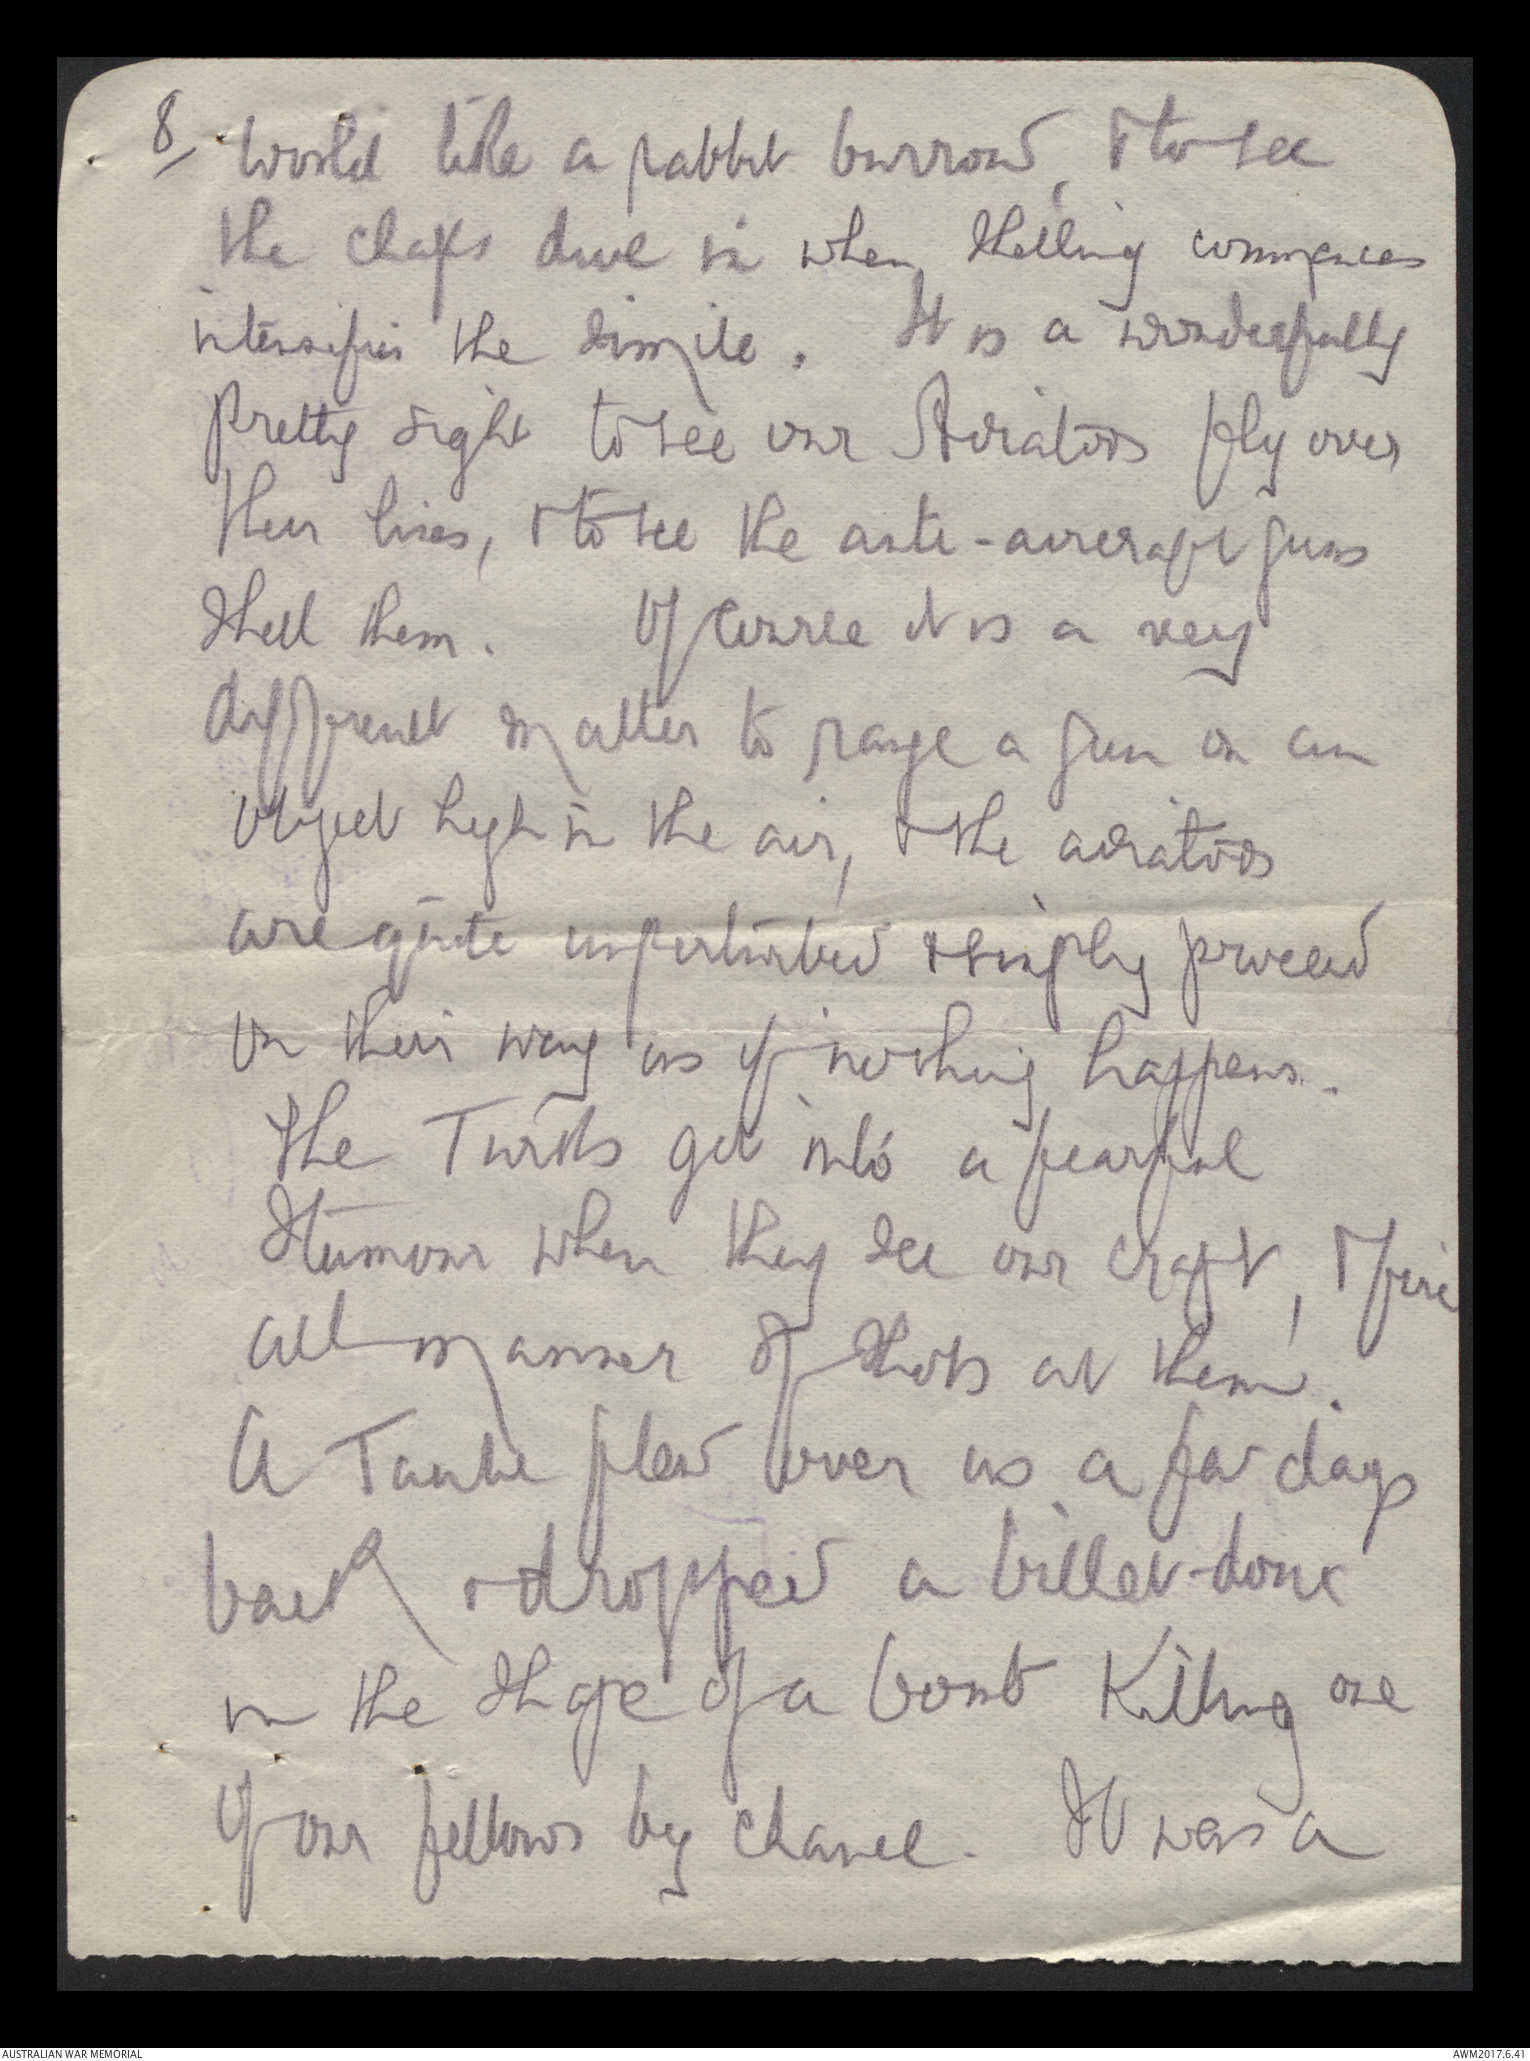 8/ world like a rabbit burrow, & to see
the chaps dive in when shelling commences
intensifies the simile. It is a wonderfully
pretty sight to see our Aviators fly over
their lines, & to see the anti-aircraft guns
shell them. Of course it is a very
different matter to range a gun on an
object high in the air, & the aviators
are quite unperturbed & simply proceed
on their way as if nothing happens.
The Turks get into a fearful
stumour when they see our craft, & fire
all manner of shots at them.
A Taube flew over us a few days
back & dropped a billet-doux
in the shape of a bomb killing one
of our fellows by chance. It was a
AUSTRALIAN WAR MEMORIAL
AWM2017.6.41